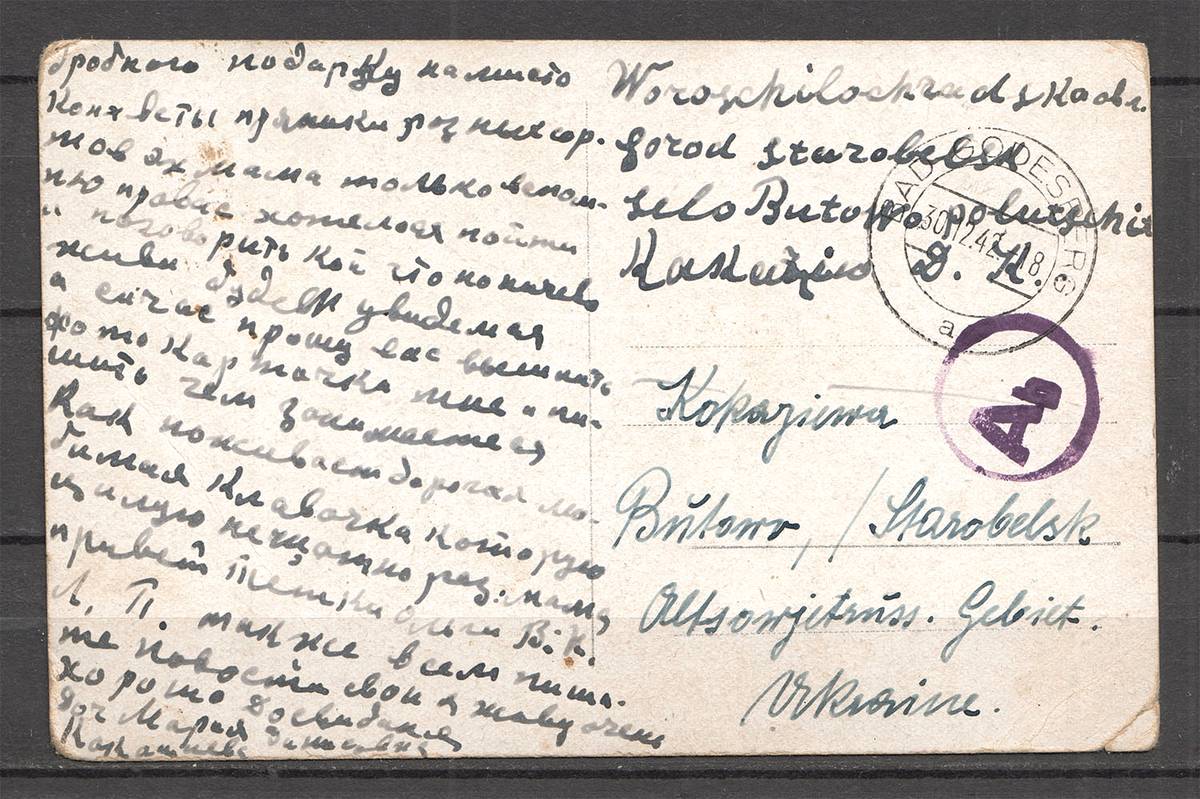 бробного подарку намисто
Конхветы пряники розных сор.
тов эх мама только вспом-
ню правас хотелося пойти
и поговорить кой что но ничево
живи будем увидемся
а сичас прошу вас вышлить
фото карточки мне и пи-
шить чем занимаетеся
Как поживает дорогая лю-
бимая Клавочка которую
цилую нещотно раз. мама
привет Тетки Ольги В. К.
Л. П. так же всем пиши-
те новости свои я живу очень
хорошо Досвидания
доч Мария Данисовна
Кокашиева
Woroschilochradskaobl.
gorod starobelsk
selo Butowo polutschit
Kakaziw D. K.
BAD GODESBERG
30.12.42.-18
a
Ab
Kokaziewa
Butowo, / Starobelsk
Altsowjetruss. Gebiet.
Ukraine.